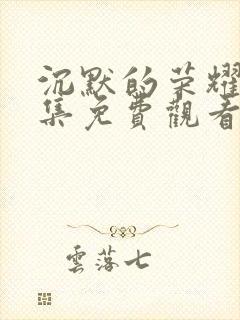 沉默的荣耀
集免費觀看
雲落七